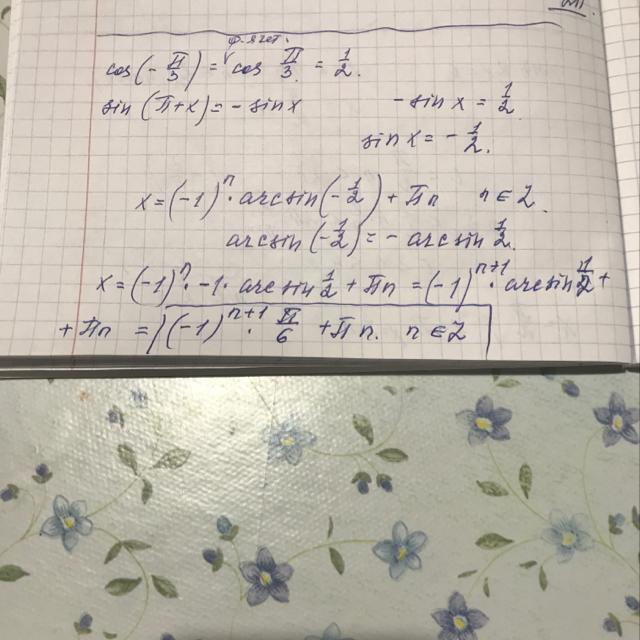 cos(-π/3) = cos π/3 = 1/2.
sin(π+x) = -sin x   -sin x = 1/2
sin x = -1/2.
x = (-1)^n · arcsin(-1/2) + πn   n ∈ Z.
arcsin(-1/2) = -arcsin 1/2.
x = (-1)^n · -1 · arcsin 1/2 + πn = (-1)^{n+1} · arcsin 1/2 +
+ πn = (-1)^{n+1} · π/6 + πn.   n ∈ Z